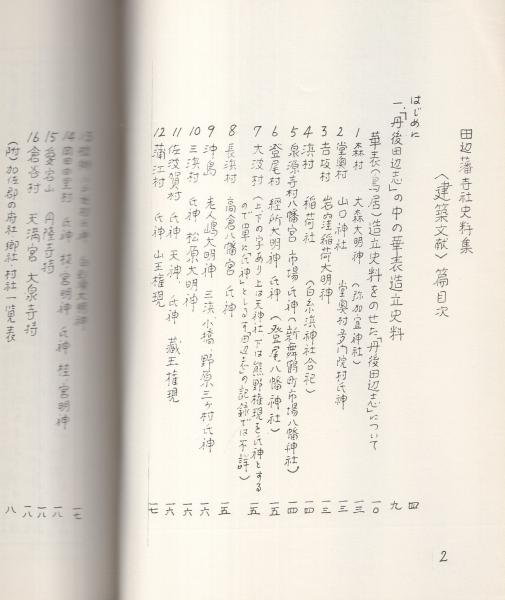 田辺藩寺社史料集
〈建築文献〉篇目次
はじめに 四
一、「丹後田辺志」の中の華表造立史料 九
華表(鳥居)造立史料をのせた「丹後田辺志」について 一〇
1 森村 大森大明神(弥加宜神社) 一三
2 堂奥村 山口神社 堂奥村多門院村氏神 一三
3 吉坂村 岩窪稲荷大明神 一三
4 浜村 稲荷社(白糸浜神社合祀) 一四
5 泉源寺村八幡宮 市場氏神(新舞鶴町市場八幡神社) 一四
6 登尾村 大明神 氏神(登尾八幡神社) 一五
7 大波村(上下の字あり上は天神社下は熊野権現を氏神とする 一五
ので単に「氏神」としるす「田辺志」の記録では不詳)
8 長浜村 高倉八幡宮 氏神 一五
9 沖島 老人嶋大明神 三浜小橋野原三ヶ村氏神 一六
10 三浜村 氏神 松原大明神 一六
11 佐波賀村 氏神 天神、氏神 蔵王権現 一六
12 蒲江村 氏神 山王権現 一七
13 大明神 一七
14 岡田由里村 氏神 枝宮明神 氏神 桂宮明神 一八
15 愛宕山 円隆寺持 一八
16 倉谷村 天満宮 大泉寺持 一八
(附)加佐郡の府社郷社村社一覧表 八
2